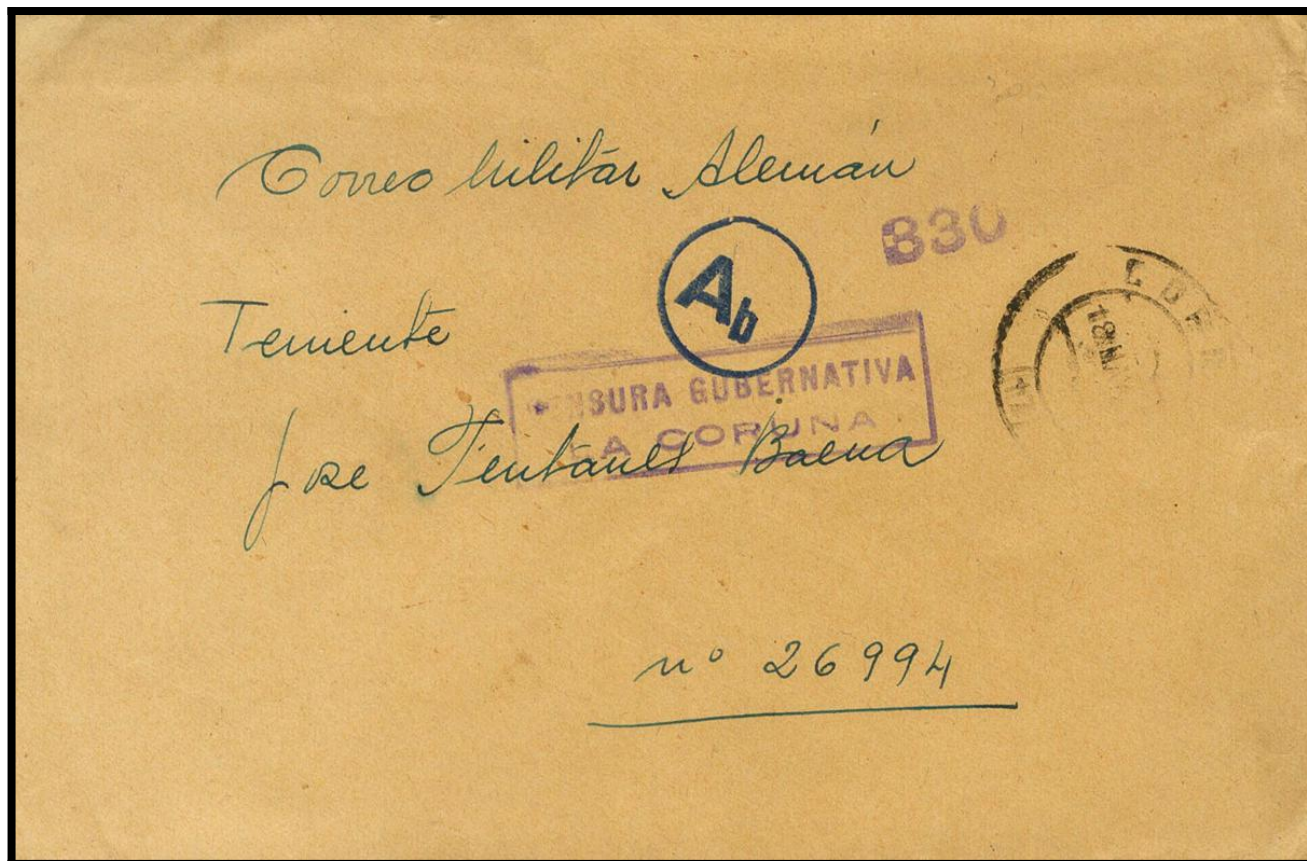 Correo Militar Alemán
830
Ab
Teniente
CENSURA GUBERNATIVA
LA CORUNA
Jose Baena
nº 26994
18